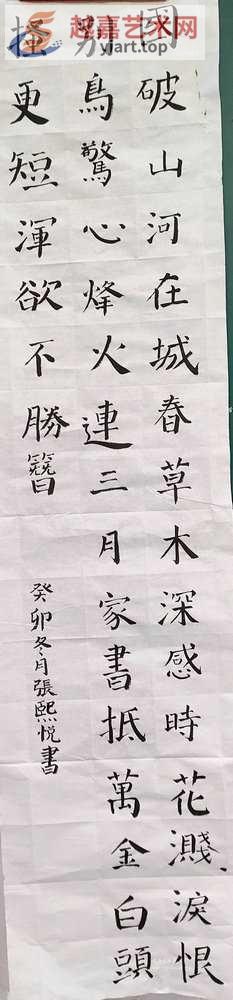 越嘉艺术网
yjart.top
國破山河在城春草木深感時花濺淚恨
别鳥驚心烽火連三月家書抵萬金白頭
搔更短渾欲不勝簪
癸卯冬月張熙悦書